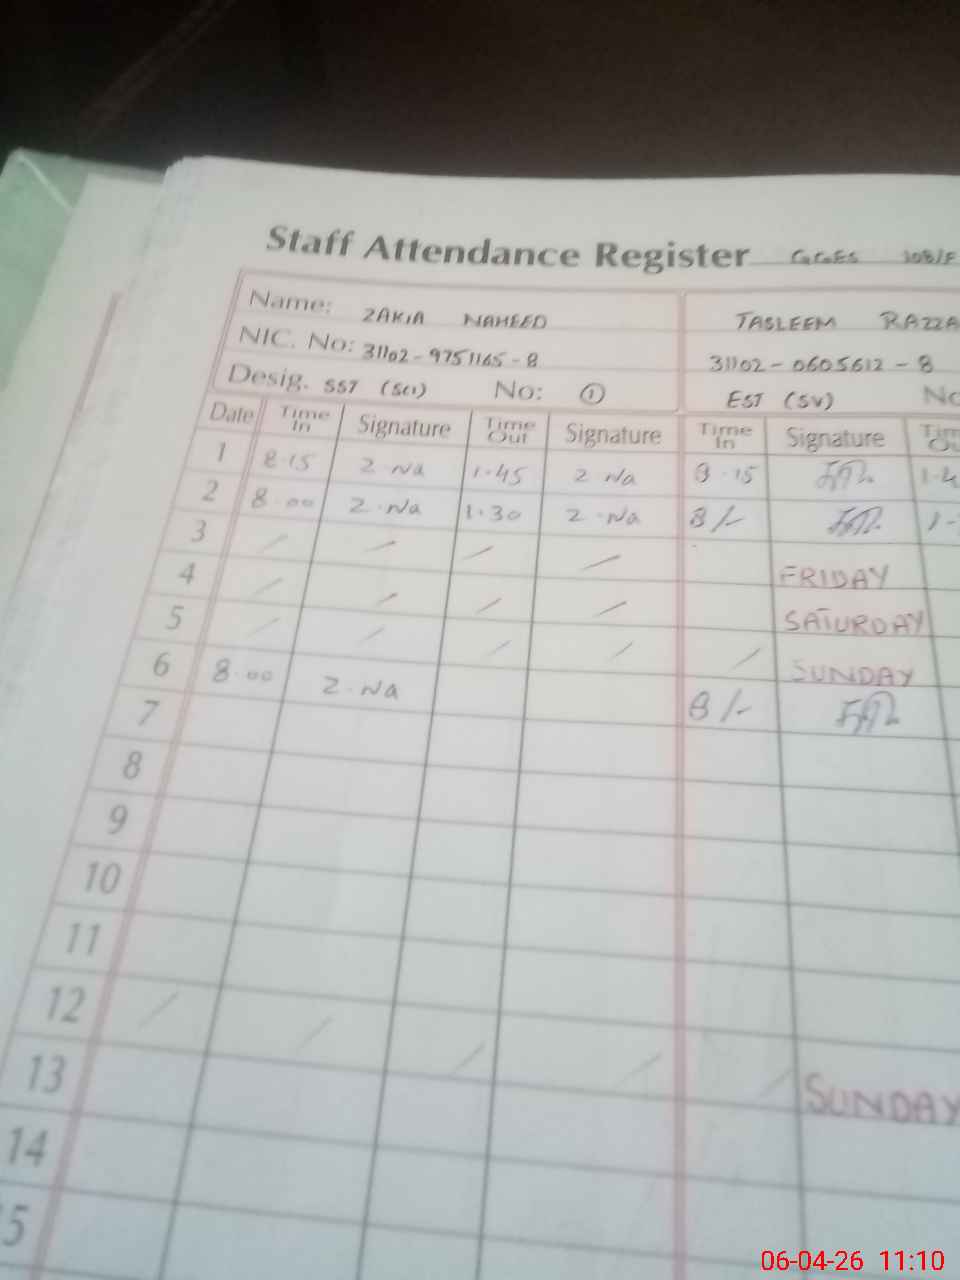 Staff Attendance Register GGES 108/F
Name: ZAKIA NAHEED TASLEEM RAZZA
NIC. No: 31102-9751165-8 31102-0605612-8
Desig. SST (Sci) No: ① EST (SV) No
Date Time In Signature Time Out Signature Time In Signature Tim Ou
1 8.15 Z.Na 1.45 Z.Na 8.15 1.4
2 8.00 Z.Na 1.30 Z.Na 8/- 1-
3 / / / / FRIDAY
4 / / / / SATURDAY
5 / / / / / SUNDAY
6 8.00 Z.Na 8/-
7
8
9
10
11
12 / / / / / SUNDAY
13
14
5
06-04-26 11:10